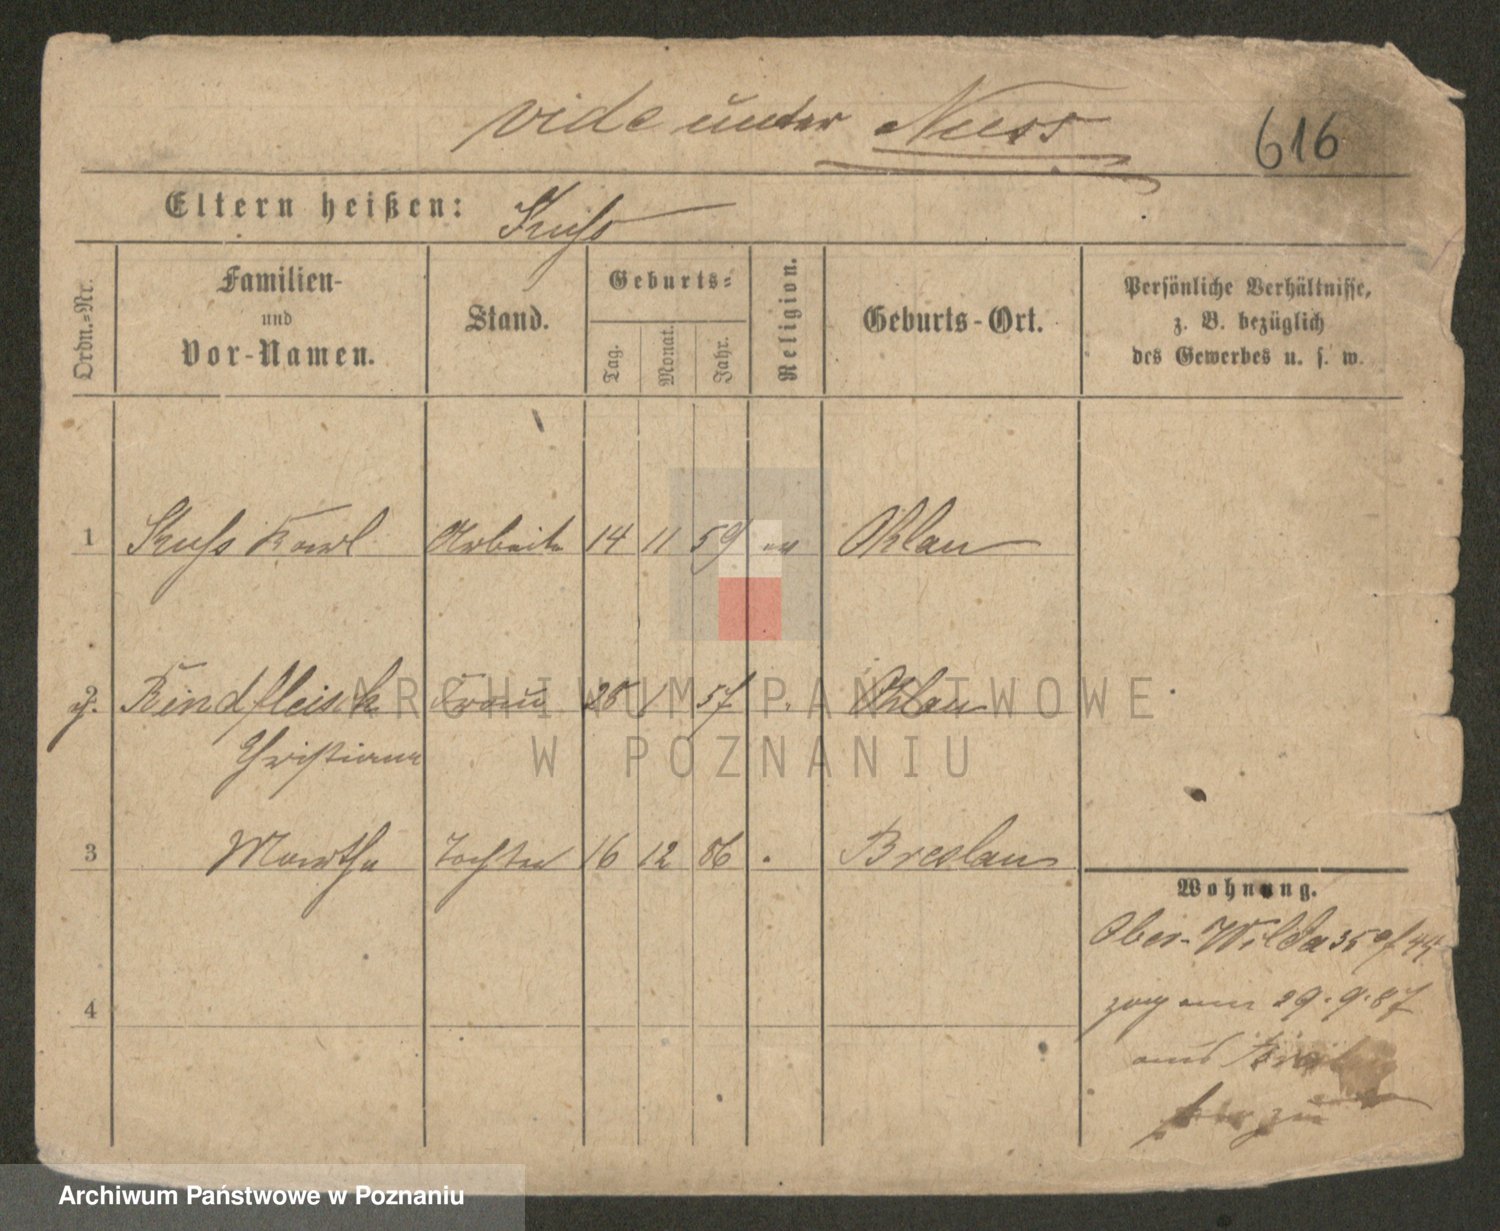 vide unter Nuss
616
Eltern heißen: Kuss
Ordn.-Nr.
Familien-
und
Vor-Namen.
Stand.
Geburts-
Tag.
Monat.
Jahr.
Religion.
Geburts-Ort.
Persönliche Verhältnisse,
z. B. bezüglich
des Gewerbes u. s. w.
1 Kuss Karl Arbeiter 14 11 59 ev Ohlau
2 Rindfleisch Frau 57 Ohlau
Christiana
3 Martha Tochter 16 12 86 Breslau
Wohnung.
Ober-Wilda 35
zog am 29.9.87
aus
hierzu
4
ARCHIWUM PAŃSTWOWE
W POZNANIU
Archiwum Państwowe w Poznaniu